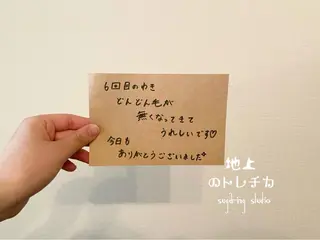 6回目のわき
どんどん毛が
無くなってきて
うれしいです♡
今日も
ありがとうございました
地上
のトレチカ